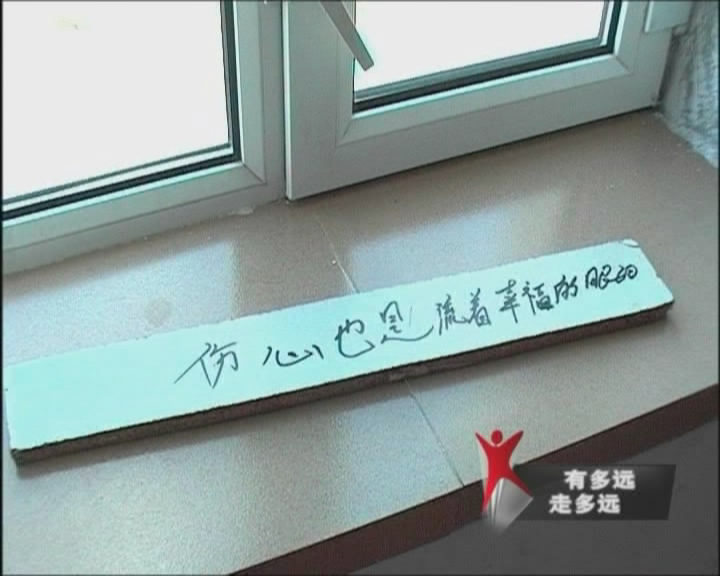 伤心也是流着幸福的眼泪
有多远
走多远